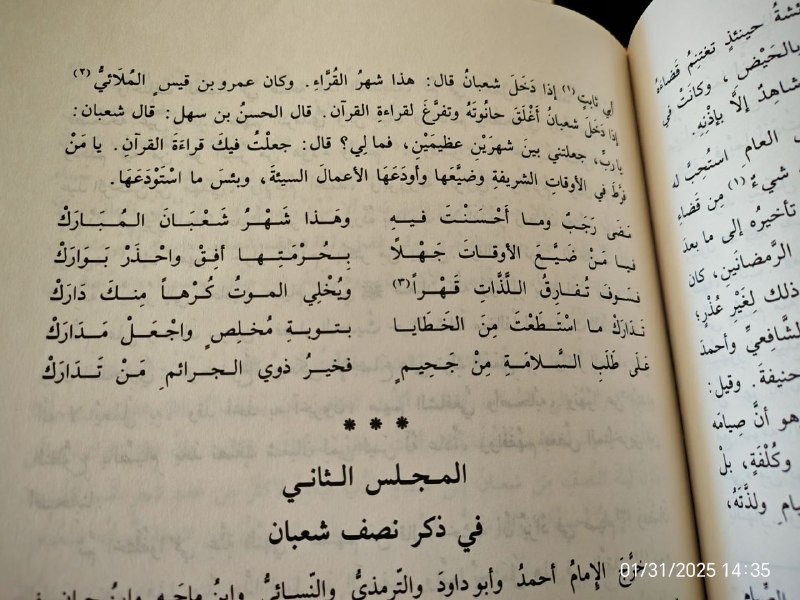 أبي ثابتٍ (١) إذا دَخَلَ شعبانُ قال: هذا شهرُ القُرَّاءِ. وكان عمرو بن قيسٍ المُلَائيُّ (٢)
إذا دَخَلَ شعبانُ أَغْلَقَ حانُوتَهُ وتفرَّغَ لقراءةِ القرآن. قال الحسنُ بن سهل: قال شعبان:
يا ربِّ، جعلتني بينَ شهرَيْنِ عظيمَيْنِ، فما لِي؟ قال: جعلْتُ فيكَ قراءَةَ القرآنِ. يا مَنْ
فرَّطَ في الأوقاتِ الشريفةِ وضيَّعَها وأودَعَها الأعمالَ السيئةَ، وبئسَ ما اسْتَوْدَعَهَا.
مَضَى رَجَبٌ وما أَحْسَنْتَ فيهِ وهَذا شَهْرُ شَعْبَانَ المُبَارَكْ
فيا مَنْ ضَيَّعَ الأوقاتَ جَهْلاً بِحُرْمَتِها أفِقْ واحْذَرْ بَوَارَكْ
فسَوفَ تُفارِقُ اللَّذَّاتِ قَهْراً (٣) ويُخْلِي الموتُ كُرْهاً مِنكَ دَارَكْ
تَدَارَكْ ما اسْتَطَعْتَ مِنَ الخَطَايا بتوبةِ مُخلِصٍ واجْعَلْ مَدَارَكْ
عَلَى طَلَبِ السَّلامَةِ مِنْ جَحِيمٍ فخيرُ ذوي الجرائمِ مَنْ تَدَارَكْ
* * *
المجلس الثاني
في ذكر نصف شعبان
خرَّجَ الإمامُ أحمدُ وأبو داودَ والتِّرمذيُّ والنَّسائيُّ وابنُ ماجَه وابنُ حبان في
حينئذٍ تغتنمُ قضاءَهُ
بالحَيْضِ، وكانَتْ في
شاهِدٌ إلَّا بإذْنِهِ.
العام استُحِبَّ له
شيءٌ (١) مِن قضاءِ
تأخيرُه إلى ما بعدَ
الرَّمضانَينِ، كان
ذلك لِغَيْرِ عُذْرٍ؛
الشَّافعيِّ وأحمدَ
حنيفةَ. وقيل:
هو أنَّ صِيامَه
وكُلْفَةٍ، بلْ
ولذَّتَهُ،
01/31/2025 14:35